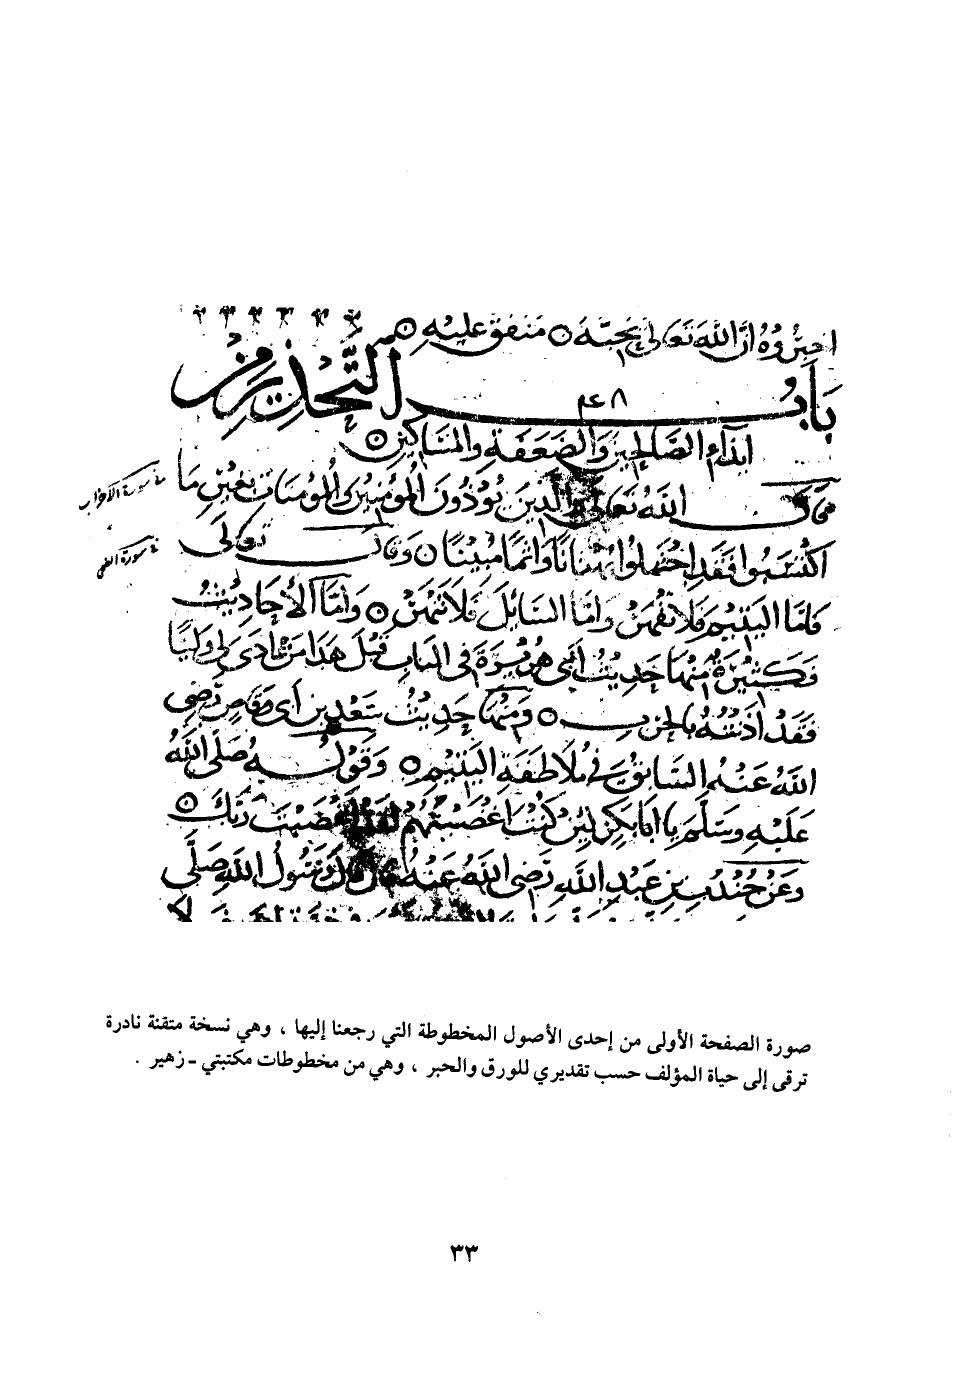 اخبروه ان الله تعالى يحبه ٥ متفق عليه ٥
باب ٤٨ التحذير من
ايذاء الصالحين والضعفة والمساكين ٥
قال الله تعالى والذين يؤذون المؤمنين والمؤمنات بغير ما
في سورة الأحزاب
اكتسبوا فقد احتملوا بهتانا واثما مبينا ٥ وقال تعالى
في سورة الضحى
فاما اليتيم فلا تقهر واما السائل فلا تنهر ٥ واما الأحاديث
فكثيرة منها حديث ابي هريرة في الباب قبل هذا من عادى لي وليا
فقد آذنته بالحرب ٥ ومنها حديث سعد بن ابي وقاص رضي
الله عنه السابق في ملاطفة اليتيم ٥ وقوله صلى الله
عليه وسلم يا ابا بكر لئن كنت اغضبتهم لقد اغضبت ربك ٥
وعن جندب بن عبد الله رضي الله عنه قال قال رسول الله صلى
صورة الصفحة الأولى من إحدى الأصول المخطوطة التي رجعنا إليها ، وهي نسخة متقنة نادرة
ترقى إلى حياة المؤلف حسب تقديري للورق والحبر ، وهي من مخطوطات مكتبتي ـ زهير .
٣٣